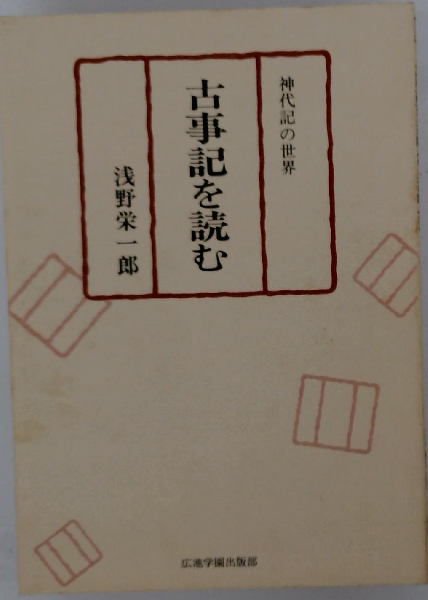 神代記の世界
古事記を読む
浅野栄一郎
広池学園出版部